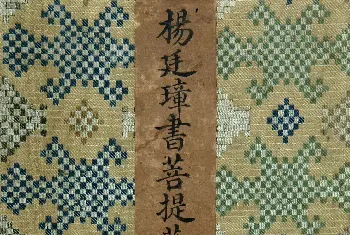 楊廷璋書菩提